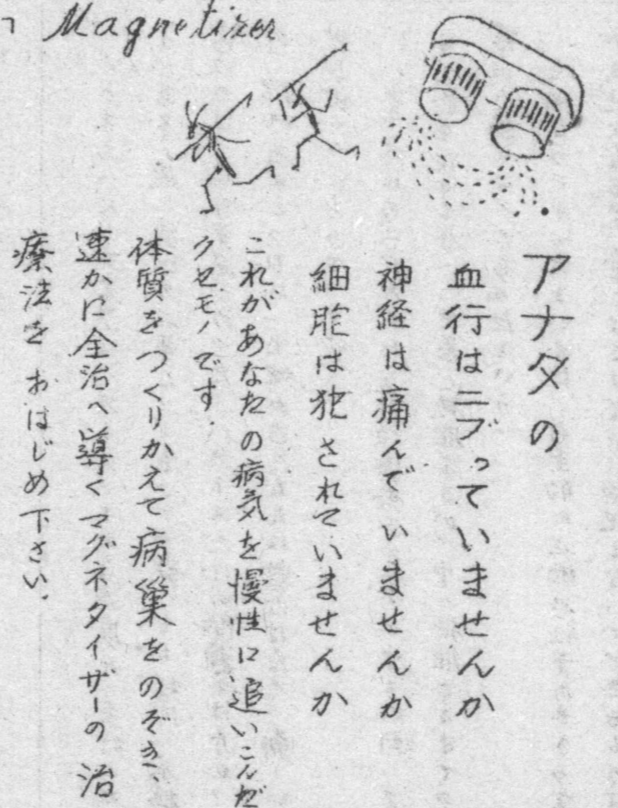 Magnetizer
アナタの
血行はニブっていませんか
神経は痛んでいませんか
細胞は犯されていませんか
これがあなたの病気を慢性に追いこんだ
クセモノです.
体質をつくりかえて病巣をのぞき、
速かに全治へ導くマグネタイザーの治
療法をおはじめ下さい.